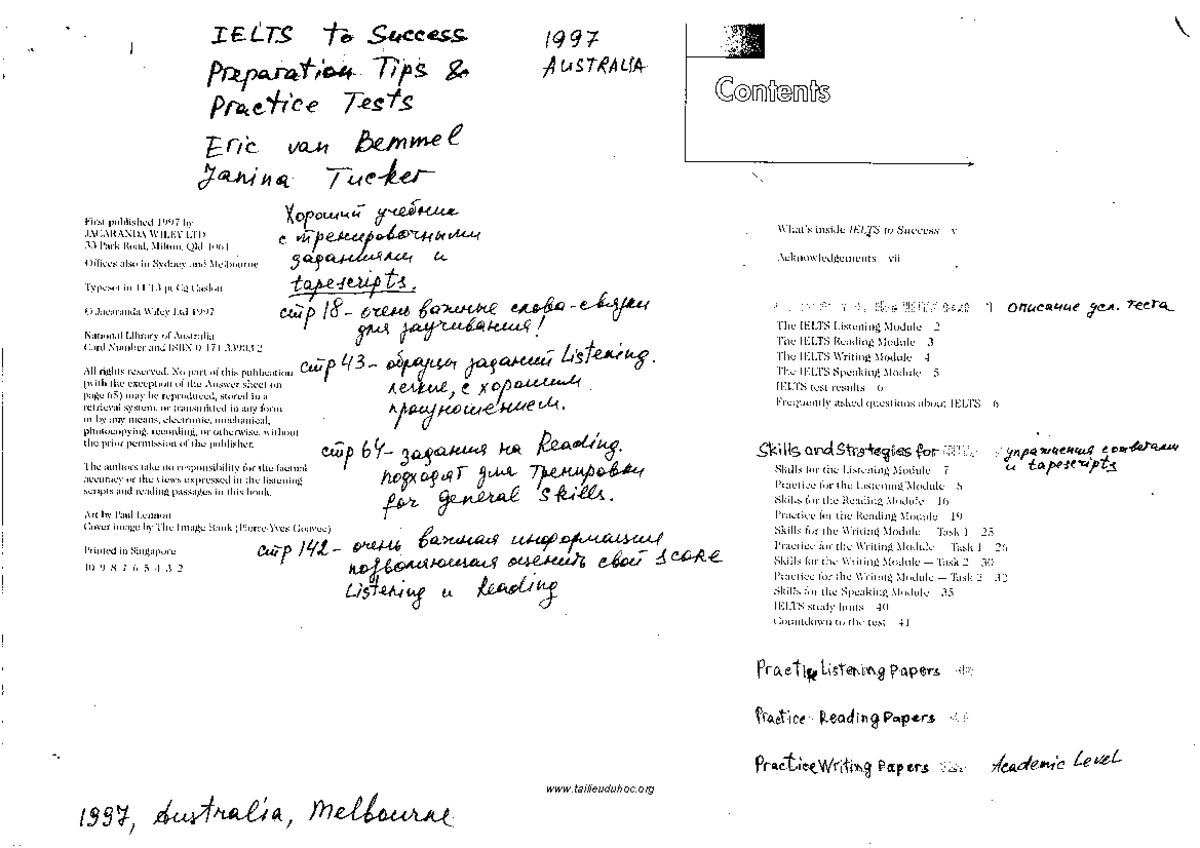 IELTS to Success
Preparation Tips &
Practice Tests
Eric van Bemmel
Janina Tucker
1997
AUSTRALIA
First published 1997 by
JACARANDA WILEY LTD
33 Park Road, Milton, Qld 4064
Offices also in Sydney and Melbourne
Typeset in 11/13 pt Cg Caslon
© Jacaranda Wiley Ltd 1997
National Library of Australia
Card Number and ISBN 0 471 33903 2
All rights reserved. No part of this publication
(with the exception of the Answer sheet on
page 65) may be reproduced, stored in a
retrieval system, or transmitted in any form
or by any means, electronic, mechanical,
photocopying, recording, or otherwise, without
the prior permission of the publisher.
The authors take no responsibility for the factual
accuracy or the views expressed in the listening
scripts and reading passages in this book.
Art by Paul Lennon
Cover image by The Image Bank (Pierre-Yves Goavec)
Printed in Singapore
10 9 8 7 6 5 4 3 2
Хороший учебник
с тренировочными
заданиями и
tapescripts.
стр 18 – очень важные слова-связки
для заучивания!
стр 43 – образцы заданий Listening.
легкие, с хорошим
произношением.
стр 64 – задания на Reading.
подходят для тренировки
for general skills.
стр 142 – очень важная информация
позволяющая оценить свой score
Listening и Reading
1997, Australia, Melbourne
www.tailieuduhoc.org
Contents
What's inside IELTS to Success v
Acknowledgements vii
the IELTS test 1 описание усл. теста
The IELTS Listening Module 2
The IELTS Reading Module 3
The IELTS Writing Module 4
The IELTS Speaking Module 5
IELTS test results 6
Frequently asked questions about IELTS 6
Skills and Strategies for IELTS упражнения с ответами
и tapescripts
Skills for the Listening Module 7
Practice for the Listening Module 8
Skills for the Reading Module 16
Practice for the Reading Module 19
Skills for the Writing Module — Task 1 25
Practice for the Writing Module — Task 1 26
Skills for the Writing Module — Task 2 30
Practice for the Writing Module — Task 2 32
Skills for the Speaking Module 35
IELTS study hints 40
Countdown to the test 41
Practice Listening Papers
Practice Reading Papers
Practice Writing Papers Academic Level